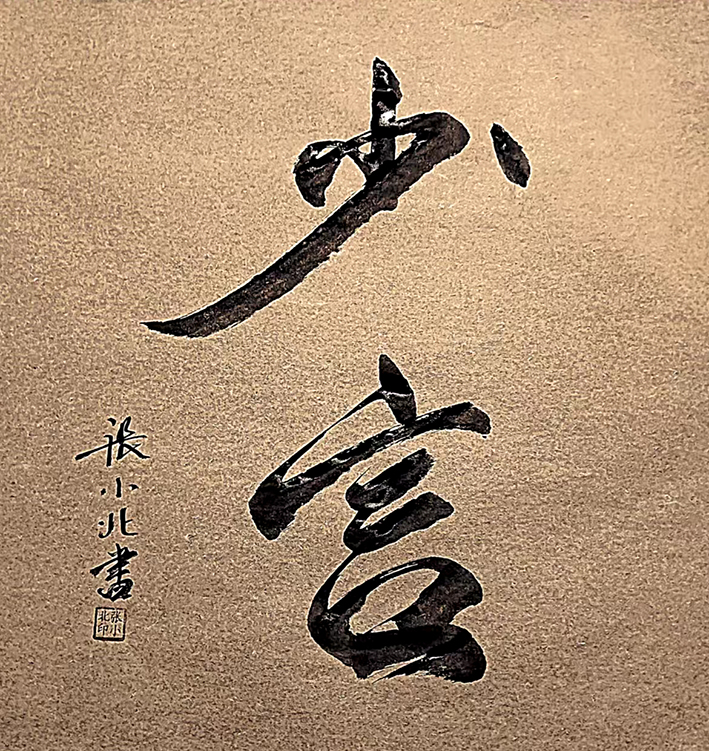 少言
張小北書
张小北印